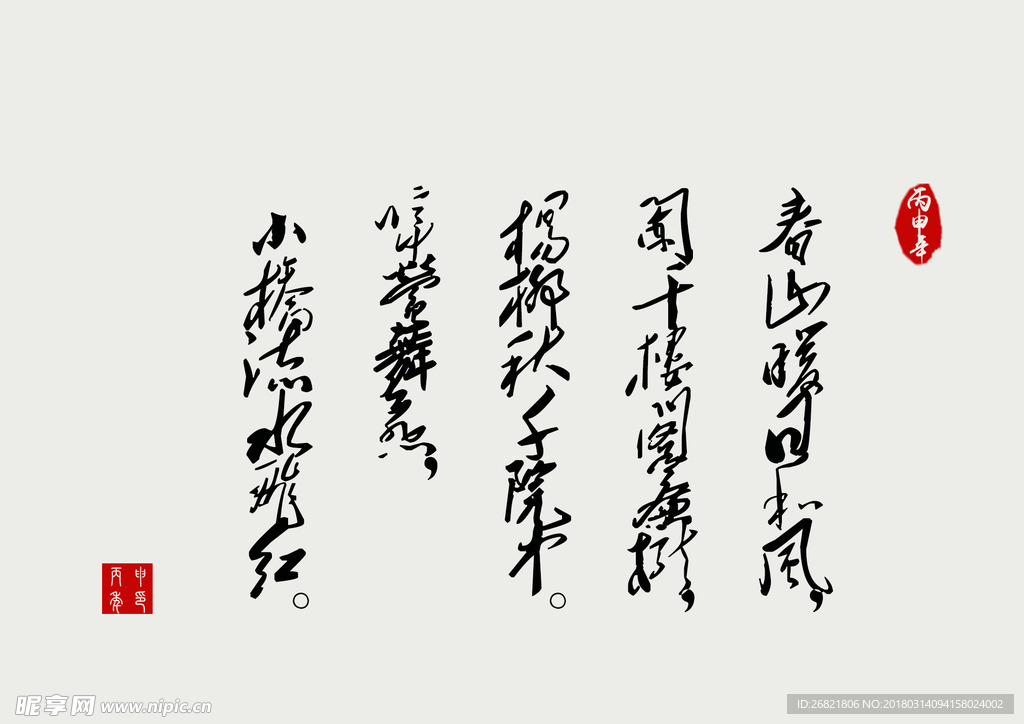 丙申年
春山暖日和风，
阑干楼阁帘栊，
杨柳秋千院中。
啼莺舞燕，
小桥流水飞红。
丙申年印
昵享网 www.nipic.cn
ID:26821806 NO:20180314094158024002